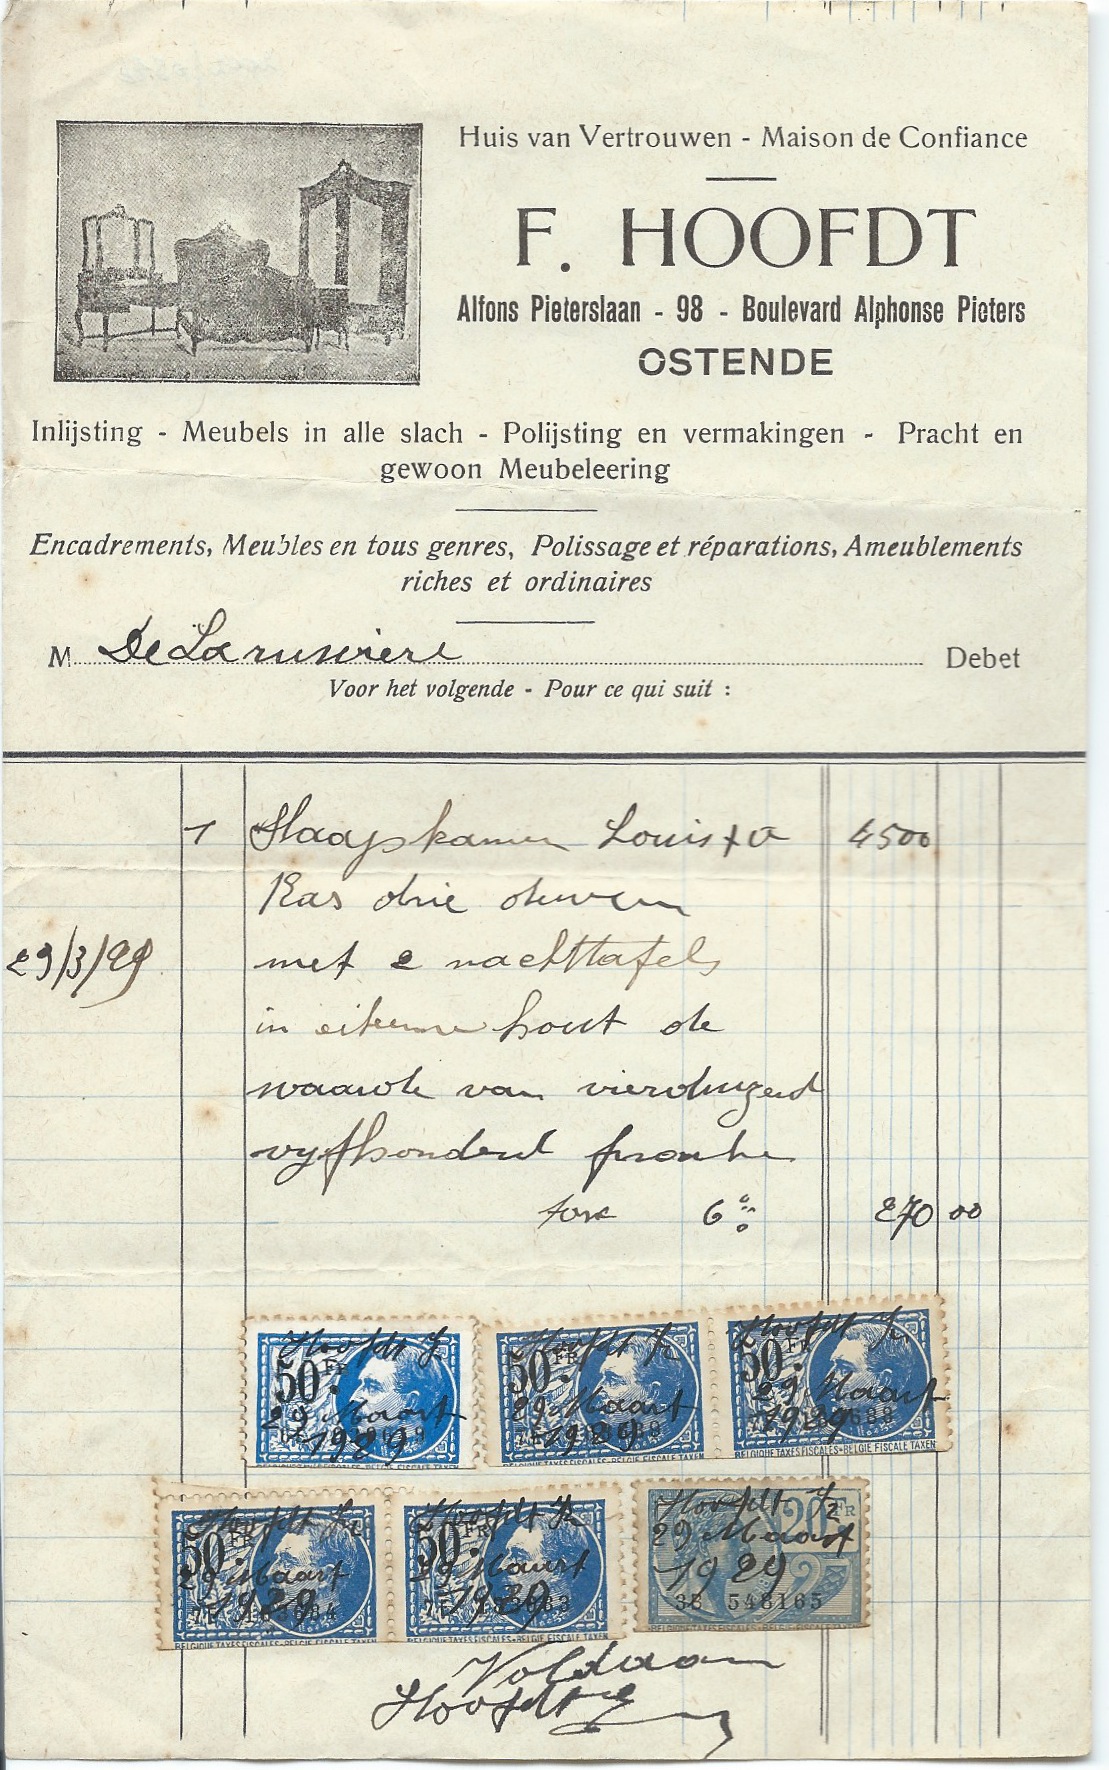 Huis van Vertrouwen - Maison de Confiance
F. HOOFDT
Alfons Pieterslaan - 98 - Boulevard Alphonse Pieters
OSTENDE
Inlijsting - Meubels in alle slach - Polijsting en vermakingen - Pracht en
gewoon Meubeleering
Encadrements, Meubles en tous genres, Polissage et réparations, Ameublements
riches et ordinaires
M De Laruwiere Debet
Voor het volgende - Pour ce qui suit :
1 Slaapkamer Louis XV 4500
Kas drie deuren
29/3/29 met 2 nachttafels
in eikenne hout de
waarde van vierduizend
vyfhonderd franken
taxe 6% 270 00
Hoofdt
50 FR
29 Maart
1929
Hoofdt
50 FR
29 Maart
1929
BELGIQUE TAXES FISCALES - BELGIE FISCALE TAXEN
Hoofdt
50 FR
29 Maart
1929
BELGIQUE TAXES FISCALES - BELGIE FISCALE TAXEN
Hoofdt
50 FR
29 Maart
1929
BELGIQUE TAXES FISCALES - BELGIE FISCALE TAXEN
Hoofdt
50 FR
29 Maart
1929
BELGIQUE TAXES FISCALES - BELGIE FISCALE TAXEN
Hoofdt 20 FR
29 Maart
1929
38 548165
Voldaan
Hoofdt